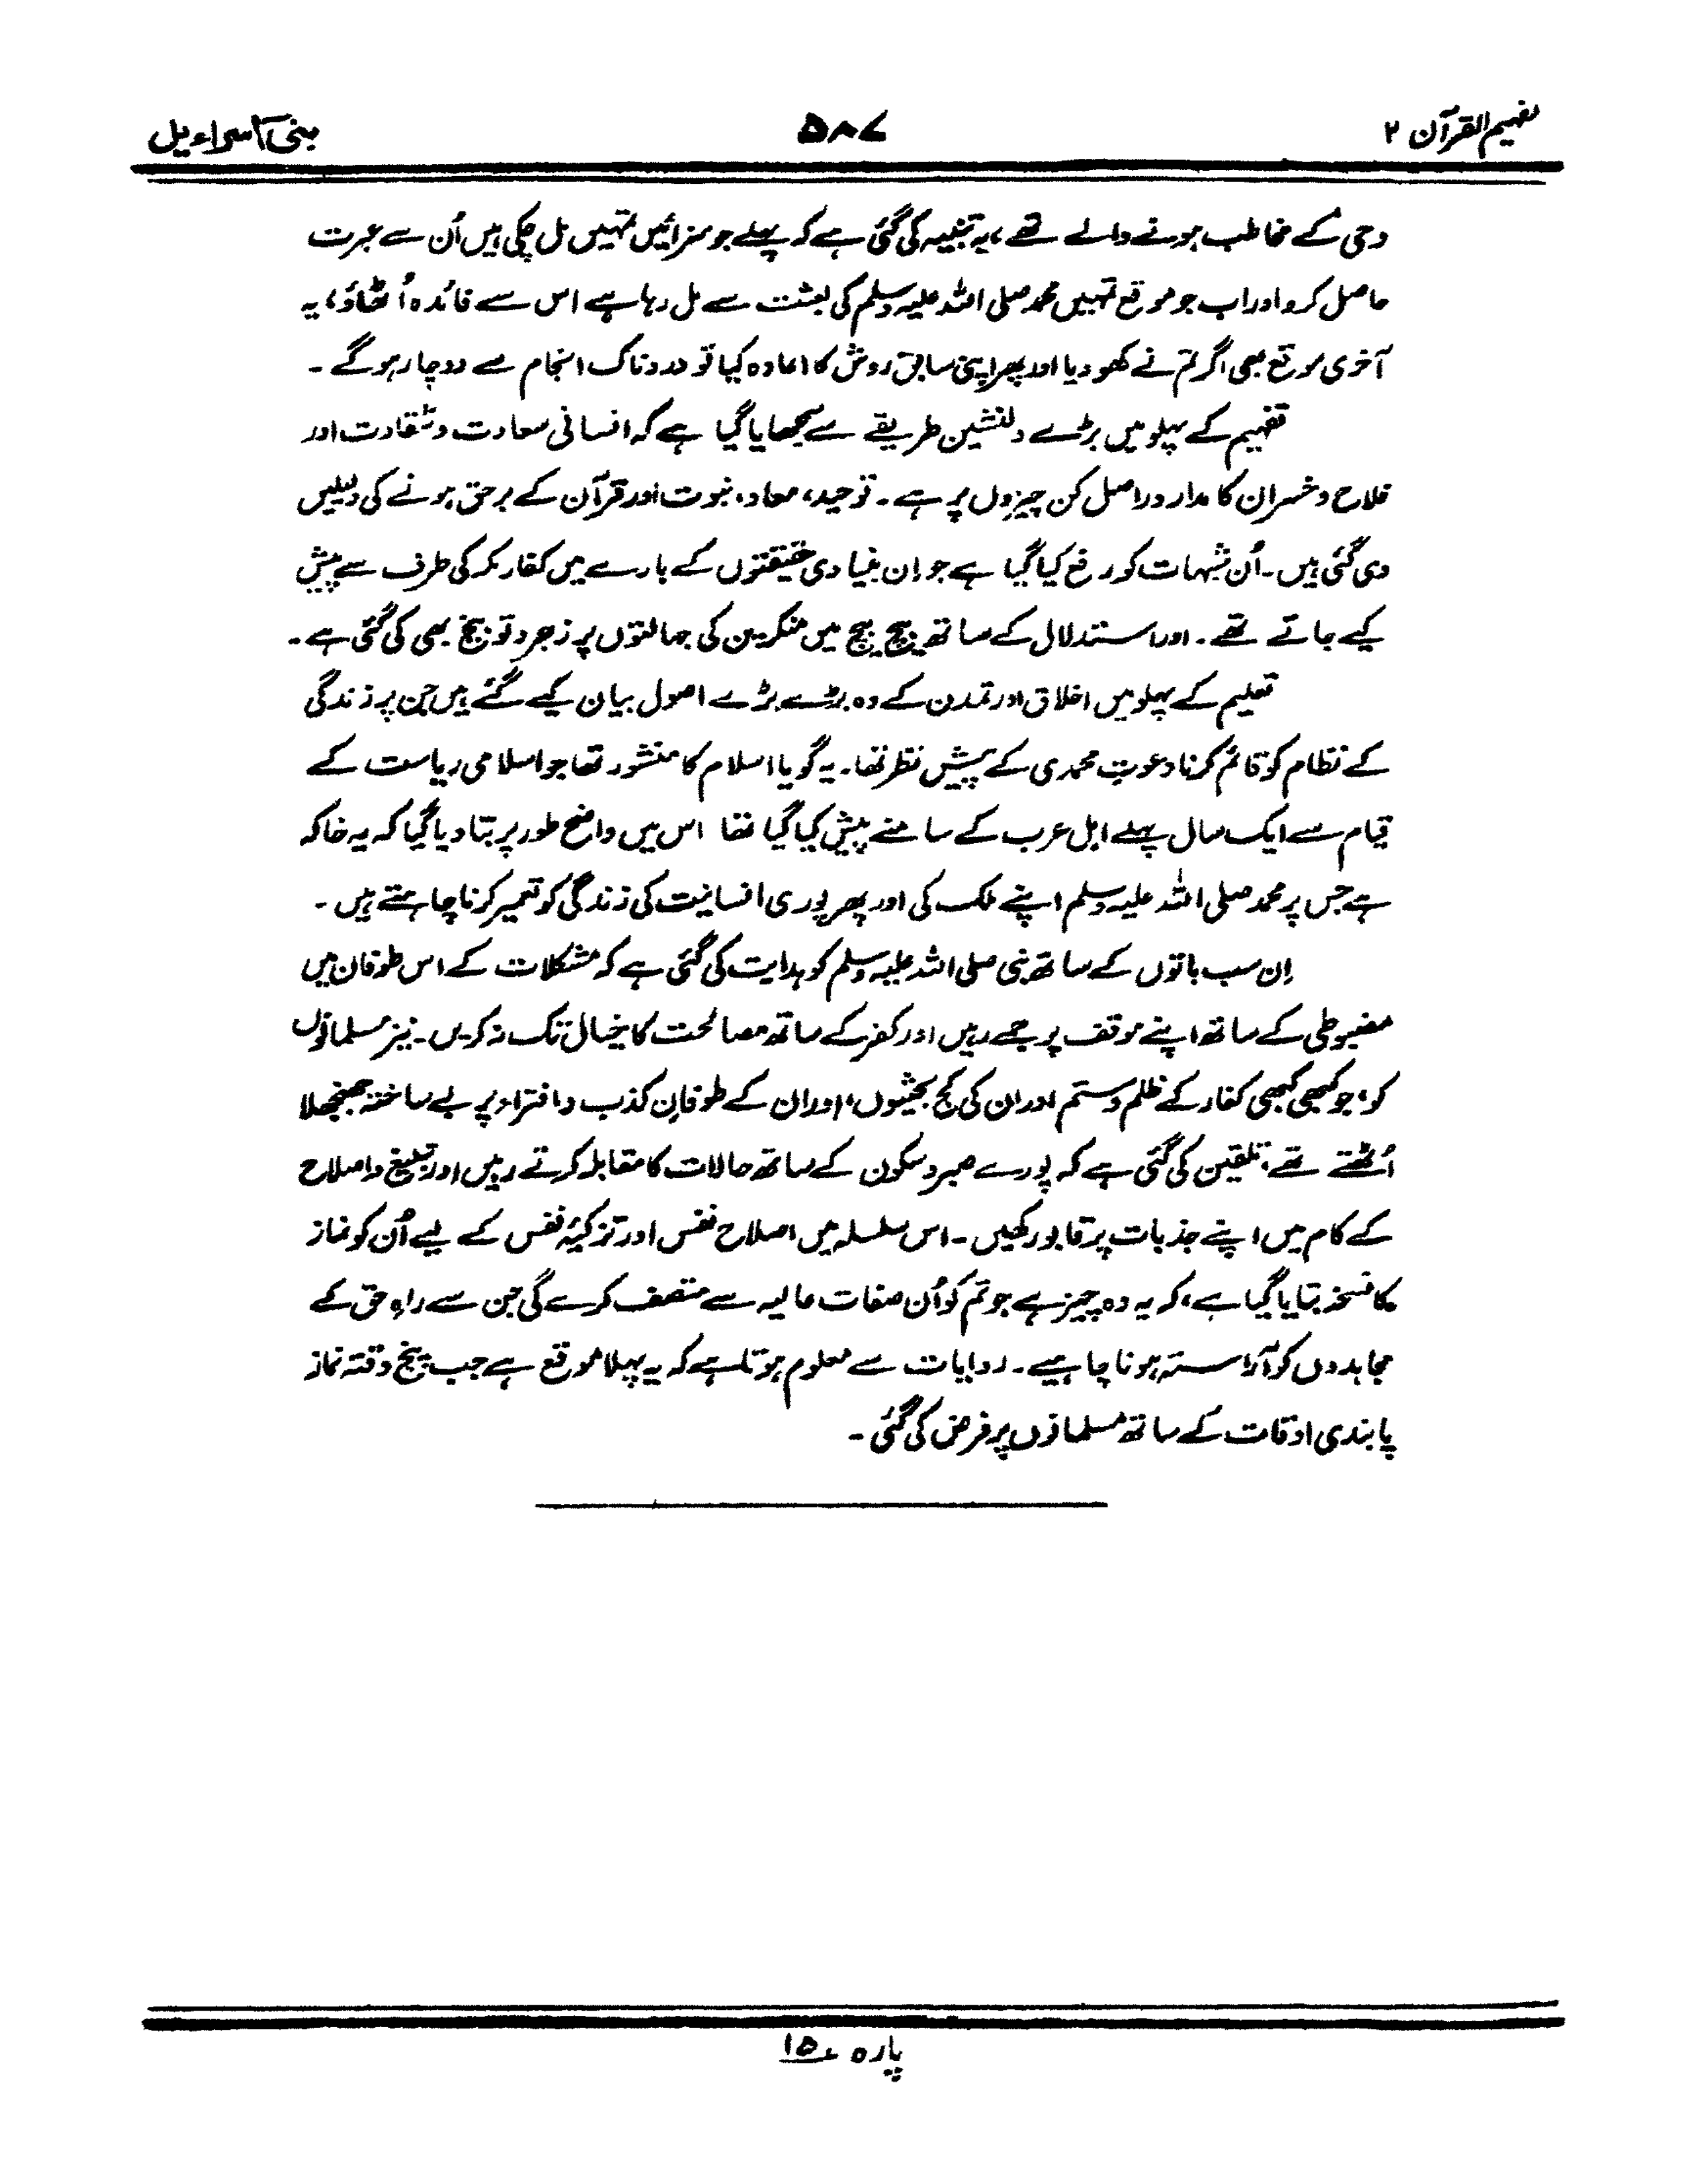 تفہیم القرآن ۲
۵۸۷
بنی اسراءیل
وحی کے مخاطب ہونے والے تھے، یہ تنبیہ کی گئی ہے کہ پہلے جو سزائیں تمہیں مل چکی ہیں اُن سے عبرت
حاصل کرو اور اب جو موقع تمہیں محمد صلی اللہ علیہ وسلم کی بعثت سے مل رہا ہے اس سے فائدہ اُٹھاؤ، یہ
آخری موقع بھی اگر تم نے کھو دیا اور پھر اپنی سابق روش کا اعادہ کیا تو دردناک انجام سے دوچار ہو گے۔
تفہیم کے پہلو میں بڑے دلنشین طریقے سے سمجھایا گیا ہے کہ انسانی سعادت و شقاوت اور
فلاح و خسران کا مدار دراصل کن چیزوں پر ہے۔ توحید، معاد، نبوت اور قرآن کے برحق ہونے کی دلیلیں
دی گئی ہیں۔ اُن شبہات کو رفع کیا گیا ہے جو اِن بنیادی حقیقتوں کے بارے میں کفار مکہ کی طرف سے پیش
کیے جاتے تھے۔ اور استدلال کے ساتھ بیچ بیچ میں منکرین کی جہالتوں پر زجر و توبیخ بھی کی گئی ہے۔
تعلیم کے پہلو میں اخلاق اور تمدن کے وہ بڑے بڑے اصول بیان کیے گئے ہیں جن پر زندگی
کے نظام کو قائم کرنا دعوتِ محمدی کے پیش نظر تھا۔ یہ گویا اسلام کا منشور تھا جو اسلامی ریاست کے
قیام سے ایک سال پہلے اہل عرب کے سامنے پیش کیا گیا تھا اس میں واضح طور پر بتا دیا گیا کہ یہ خاکہ
ہے جس پر محمد صلی اللہ علیہ وسلم اپنے ملک کی اور پھر پوری انسانیت کی زندگی کو تعمیر کرنا چاہتے ہیں۔
اِن سب باتوں کے ساتھ نبی صلی اللہ علیہ وسلم کو ہدایت کی گئی ہے کہ مشکلات کے اس طوفان میں
مضبوطی کے ساتھ اپنے موقف پر جمے رہیں اور کفر کے ساتھ مصالحت کا خیال تک نہ کریں۔ نیز مسلمانوں
کو، جو کبھی کبھی کفار کے ظلم و ستم اور ان کی کج بحثیوں، اور ان کے طوفانِ کذب و افتراء پر بے ساختہ جھنجھلا
اُٹھتے تھے، تلقین کی گئی ہے کہ پورے صبر و سکون کے ساتھ حالات کا مقابلہ کرتے رہیں اور تبلیغ و اصلاح
کے کام میں اپنے جذبات پر قابو رکھیں۔ اس سلسلہ میں اصلاح نفس اور تزکیۂ نفس کے لیے اُن کو نماز
کا نسخہ بتایا گیا ہے، کہ یہ وہ چیز ہے جو تم کو اُن صفات عالیہ سے متصف کرے گی جن سے راہِ حق کے
مجاہدوں کو آراستہ ہونا چاہیے۔ روایات سے معلوم ہوتا ہے کہ یہ پہلا موقع ہے جب پنج وقتہ نماز
پابندی اوقات کے ساتھ مسلمانوں پر فرض کی گئی۔
پارہ ۱۵